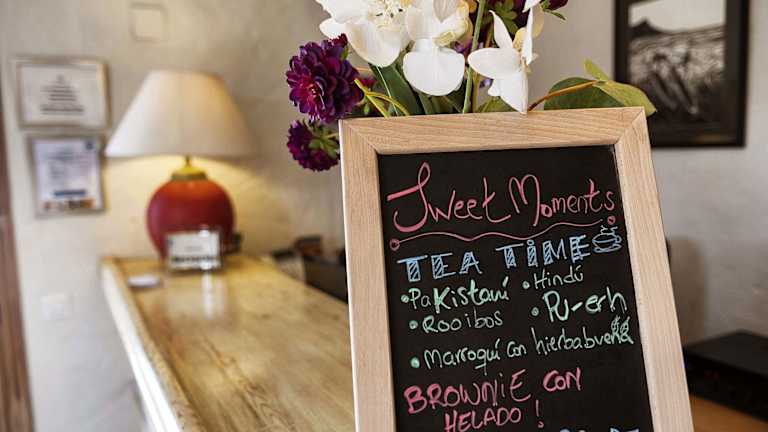 Sweet Moments
TEA TIME
• Pakistaní • Hindú
• Rooibos • Pu-erh
• Marroquí con hierbabuena
BROWNIE CON
HELADO!